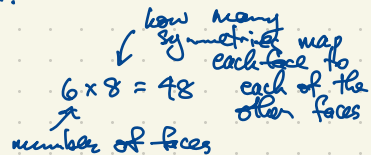 how many
symmetries map
each face to
6 x 8 = 48 each of the
other faces
number of faces